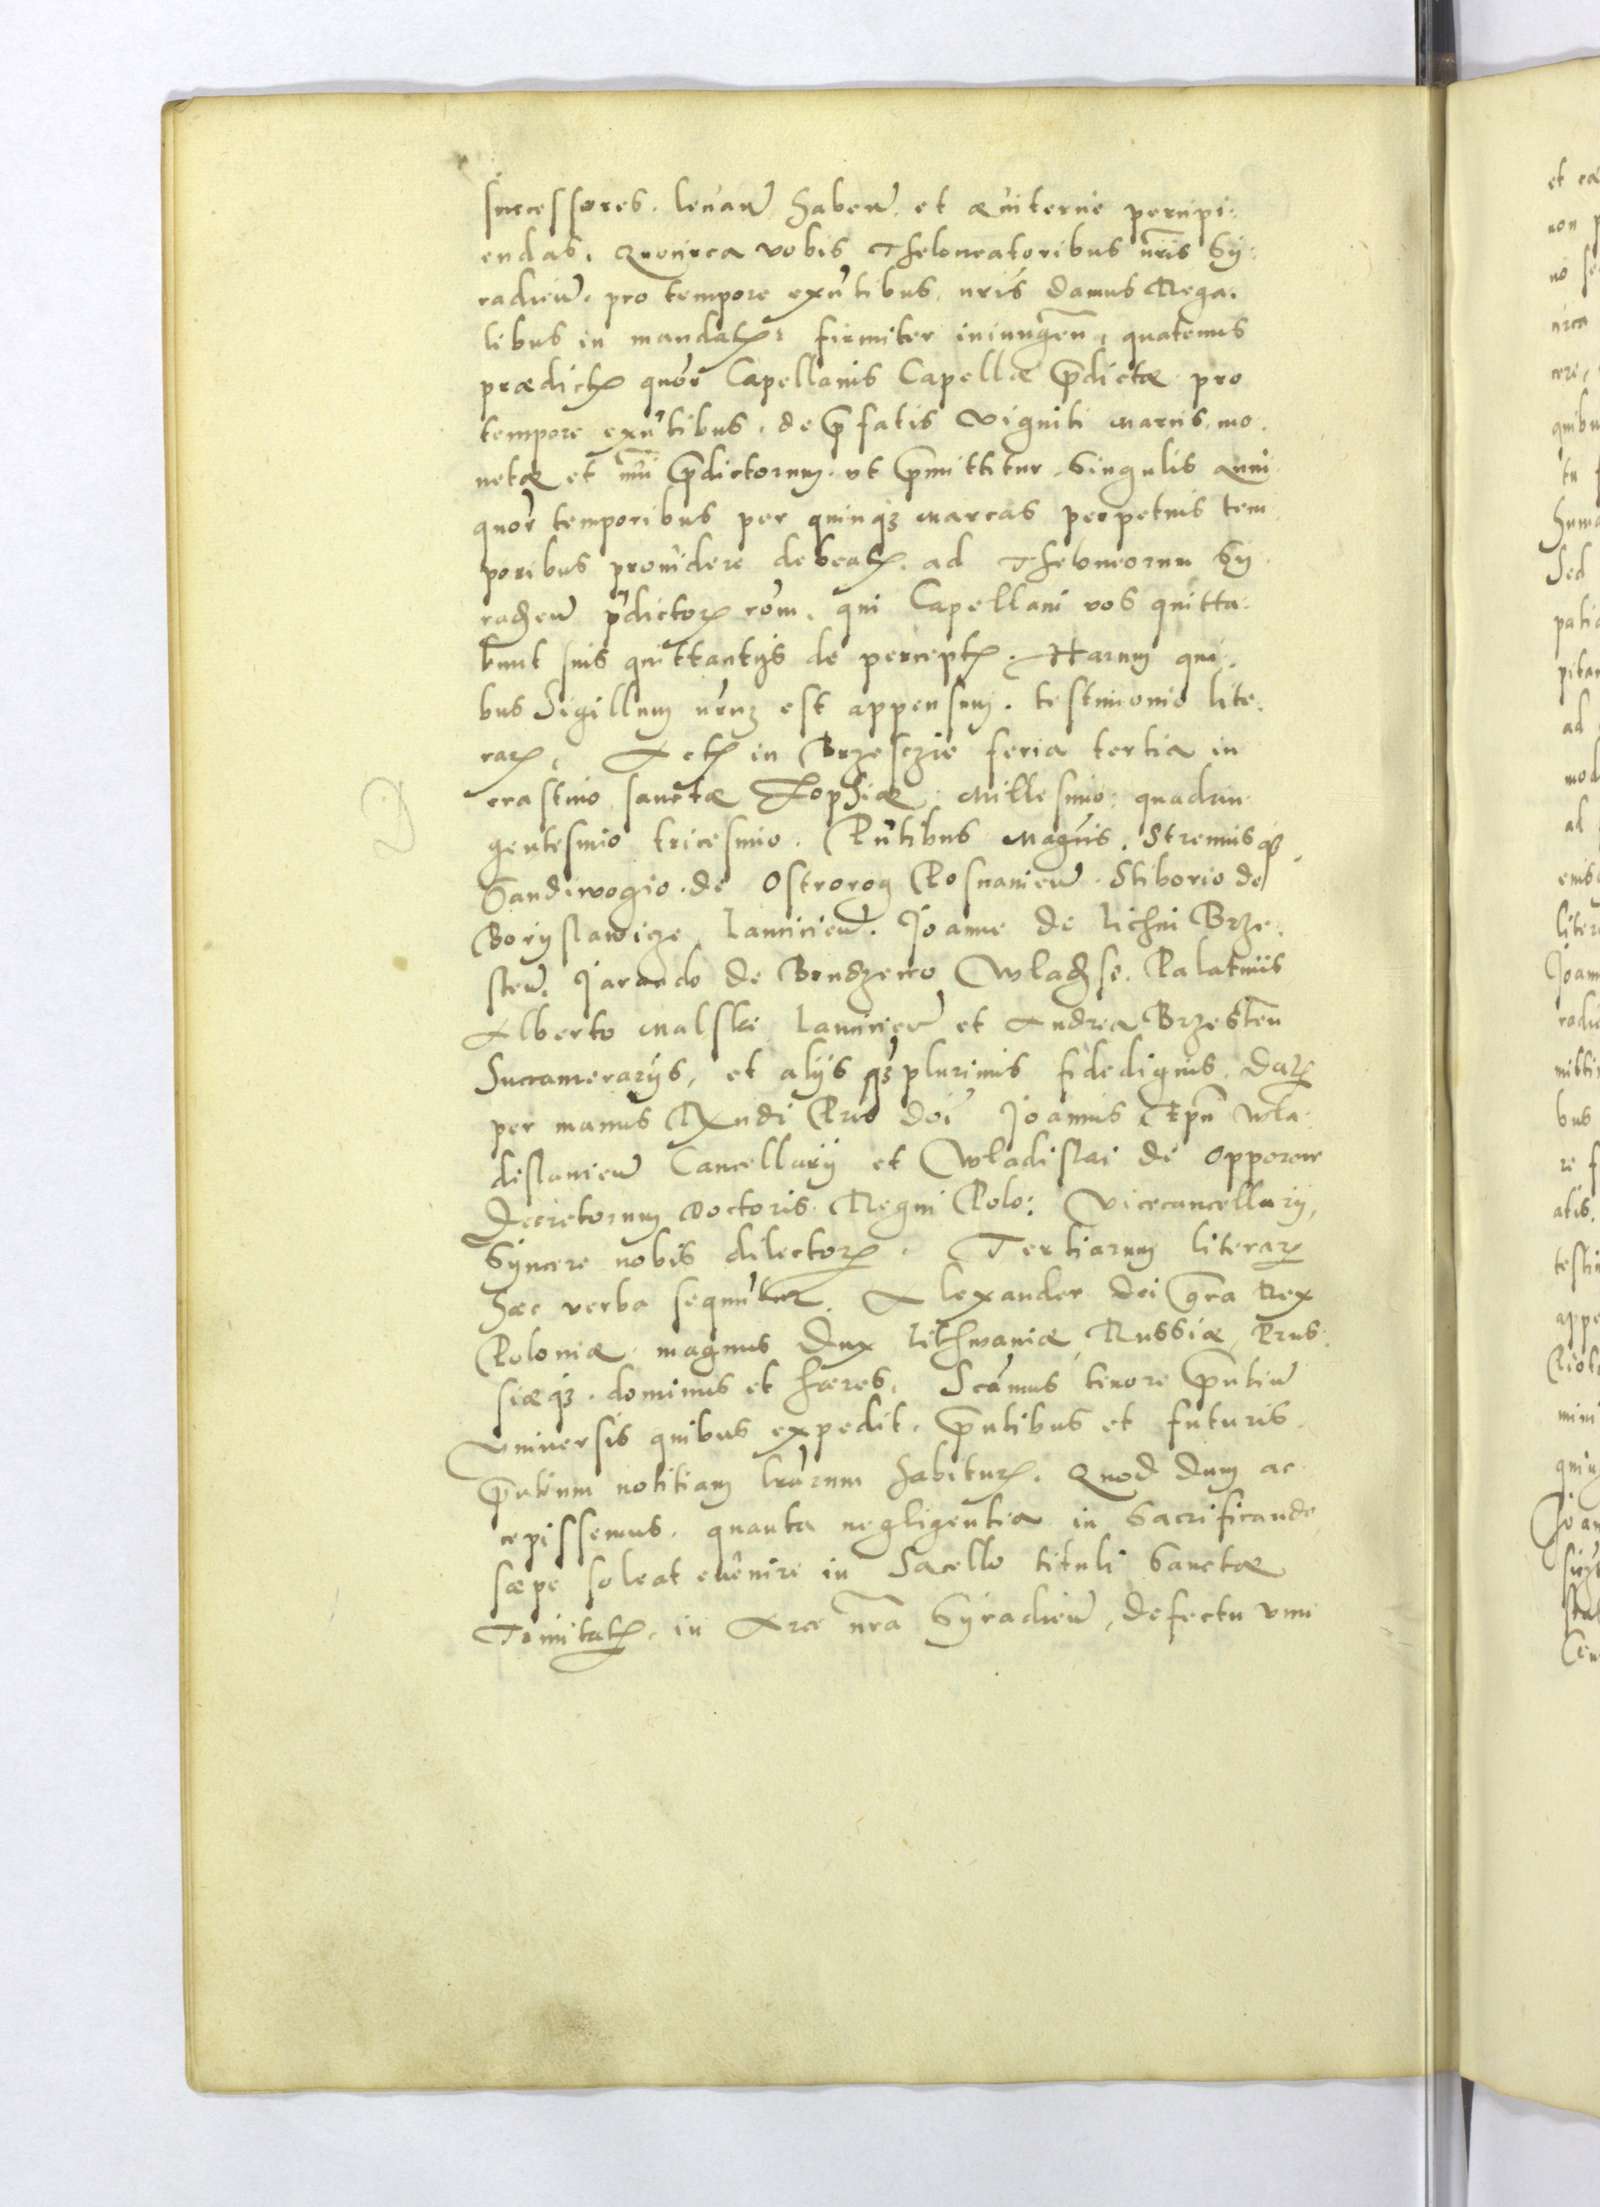 successores. levan̄ haben̄. et æviterne percipi-
endas. Quocirca vobis Theloneatoribus nr̄is Sy-
radien̄. pro tempore exn̄tibus, nris damus Rega-
libus in mandatis: firmiter iniungen̄, quatenus
prædictis quor Capellanis Capellæ p̄dictæ pro
tempore exn̄tibus. de p̄fatis viginti marcis mo-
netæ et nu̅i p̄dictorum. ut p̄mittitur singulis anni
quor̄ temporibus per quinq3 marcas perpetuis tem-
poribus providere debeatis. ad Theloneorum Sy-
radien̄ p̄dictor̄ rōm. qui Capellani vos quitta-
bunt suis quittantijs de perceptis. Harum qui-
bus Sigillum nr̄um est appensum. testimonio lite-
rar̄. Actum in Brzesczie feria tertia in
crastino sanctæ Zophiæ. Millesimo quadrin-
gentesimo tricesimo. Pn̄tibus Magn̄is. Strenuisq3
Sandiwogio. de Ostrorog Posnanien̄. Stiborio de
Boryslawicze Lancicien̄. Joanne de Lichni Brze-
sten̄. Jarando de Brudzewo Wladisl. Palatinis
Alberto Malski Lancicien̄ et Andrea Brzesten̄
Succamerarijs, et alijs q3 plurimis fidedignis. Dat̄
per manus Rx̄ndi Pris doi Joannis Ep̄n Wla-
dislavien̄ Cancellarij et Wladislai de Opporow
Decretorum Doctoris. Regni Polo: Vicecancellarij,
Syncere nobis dilector̄. Tertiarum literar̄
hæc verba sequn̄tur. Alexander Dei gr̄a Rex
Poloniæ. magnus Dux Lithwaniæ, Russiæ, Prus-
siæq3. dominus et hæres. Scāmus tenore p̄ntiu̅
Universis quibus expedit. p̄ntibus et futuris.
p̄ntium notitiam lrārum habituris. Quod dum ac-
cepissemus. quanta negligentia in Sacrificando
sæpe soleat evenire in Sacello tituli Sanctæ
Trinitatis, in Arce nr̄a Syradien̄, defectu vini